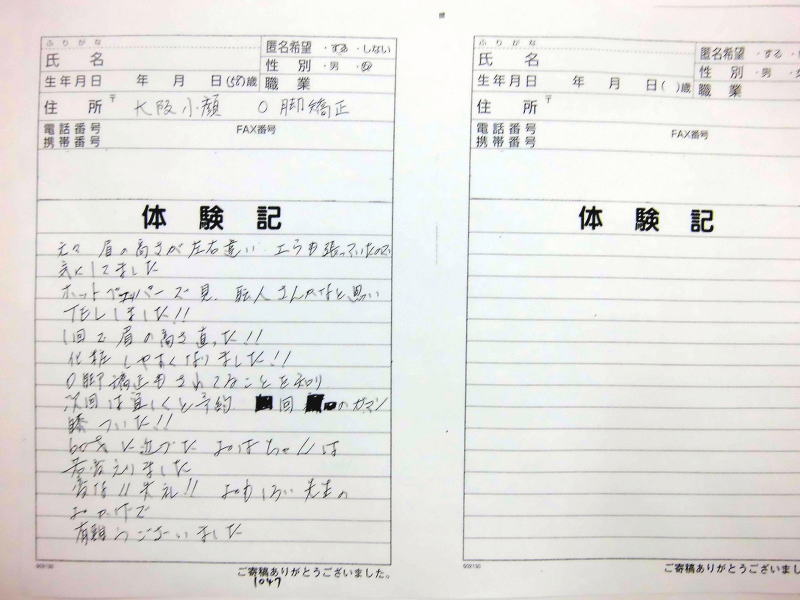 ふりがな
氏 名
匿名希望 ・する ・しない
性 別 ・男 ・女
生年月日 年 月 日(58)歳
職 業
住 所 〒 大阪小顔 O脚矯正
電話番号
FAX番号
携帯番号
体験記
元々 眉の高さが左右違い エラも張っていたので
気にしてました
ホットペッパーで見、 さんかなと思い
TELしました!!
1回で眉の高さ直った!!
化粧しやすくなりました!!
O脚矯正もされてることを知り
次回は宜しくと予約 回 のガマン
膝ついた!!
60歳に近づた おばちゃんは
若返えりました
失礼!! おもしろい先生の
おかげで
有難うございました
ご寄稿ありがとうございました。
1047
ふりがな
氏 名
匿名希望 ・する
性 別 ・男 ・女
生年月日 年 月 日( )歳
職 業
住 所 〒
電話番号
FAX番号
携帯番号
体験記
ご寄稿ありがとうございました